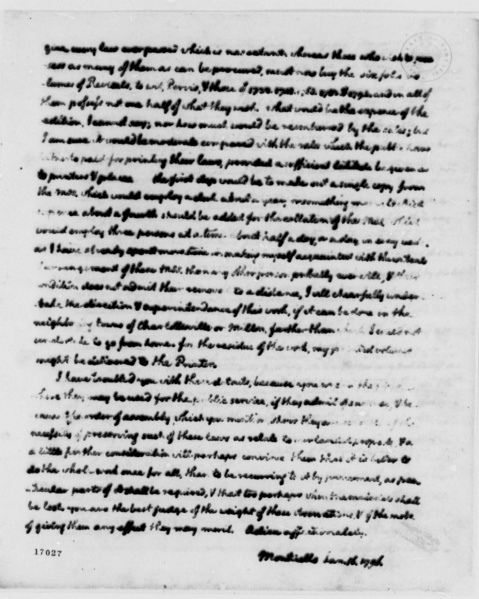 give every law ever passed which is now extant: whereas those who wish to pos-
sess as many of them as can be procured, must now buy the six folio vo-
lumes of Revisals, to wit, Purvis, & those of 1732. 1748. and in all of
them possess not one half of what they wish. What would be the expence of the
edition, I cannot say, nor how much would be reimbursed by the sales; but
I am sure it would be moderate compared with the rates which the public have
hitherto paid for printing their laws, provided a sufficient latitude be given as
to printers & places. the first step would be to make out a single copy from
the MSS. which would employ a clerk about a year, or something more, to which
expence about a fourth should be added for the collation of the MSS. which
would employ three persons at a time about half a day, or a day, in every week.
as I have already spent more time in making myself acquainted with the contents
& arrangement of these MSS. than any other person probably ever will, & their
condition does not admit their removal to a distance, I will chearfully under-
take the direction & superintendance of this work, if it can be done in the
neighboring towns of Charlottesville or Milton, farther than which I could not
undertake to go from home. for the residue of the work, my printed volumes
might be delivered to the Printer.
I have troubled you with these details, because you are in the
where they may be used for the public service, if they admit of such use, & be-
cause the order of assembly, which you mention, shows they are
necessity of preserving such of these laws as relate to our landed property, & a
a little farther consideration will perhaps convince them that it is better to
do the whole work once for all, than to be recurring to it by piecemeal, as par-
ticular parts of it shall be required, & that too perhaps when the materials shall
be lost. you are the best judge of the weight of these observations, & of the mode
of giving them any effect they may merit. Adieu affectionately.
Monticello Jan. 16. 1796
17027